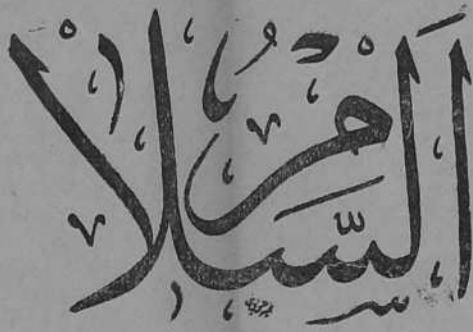 السّلام